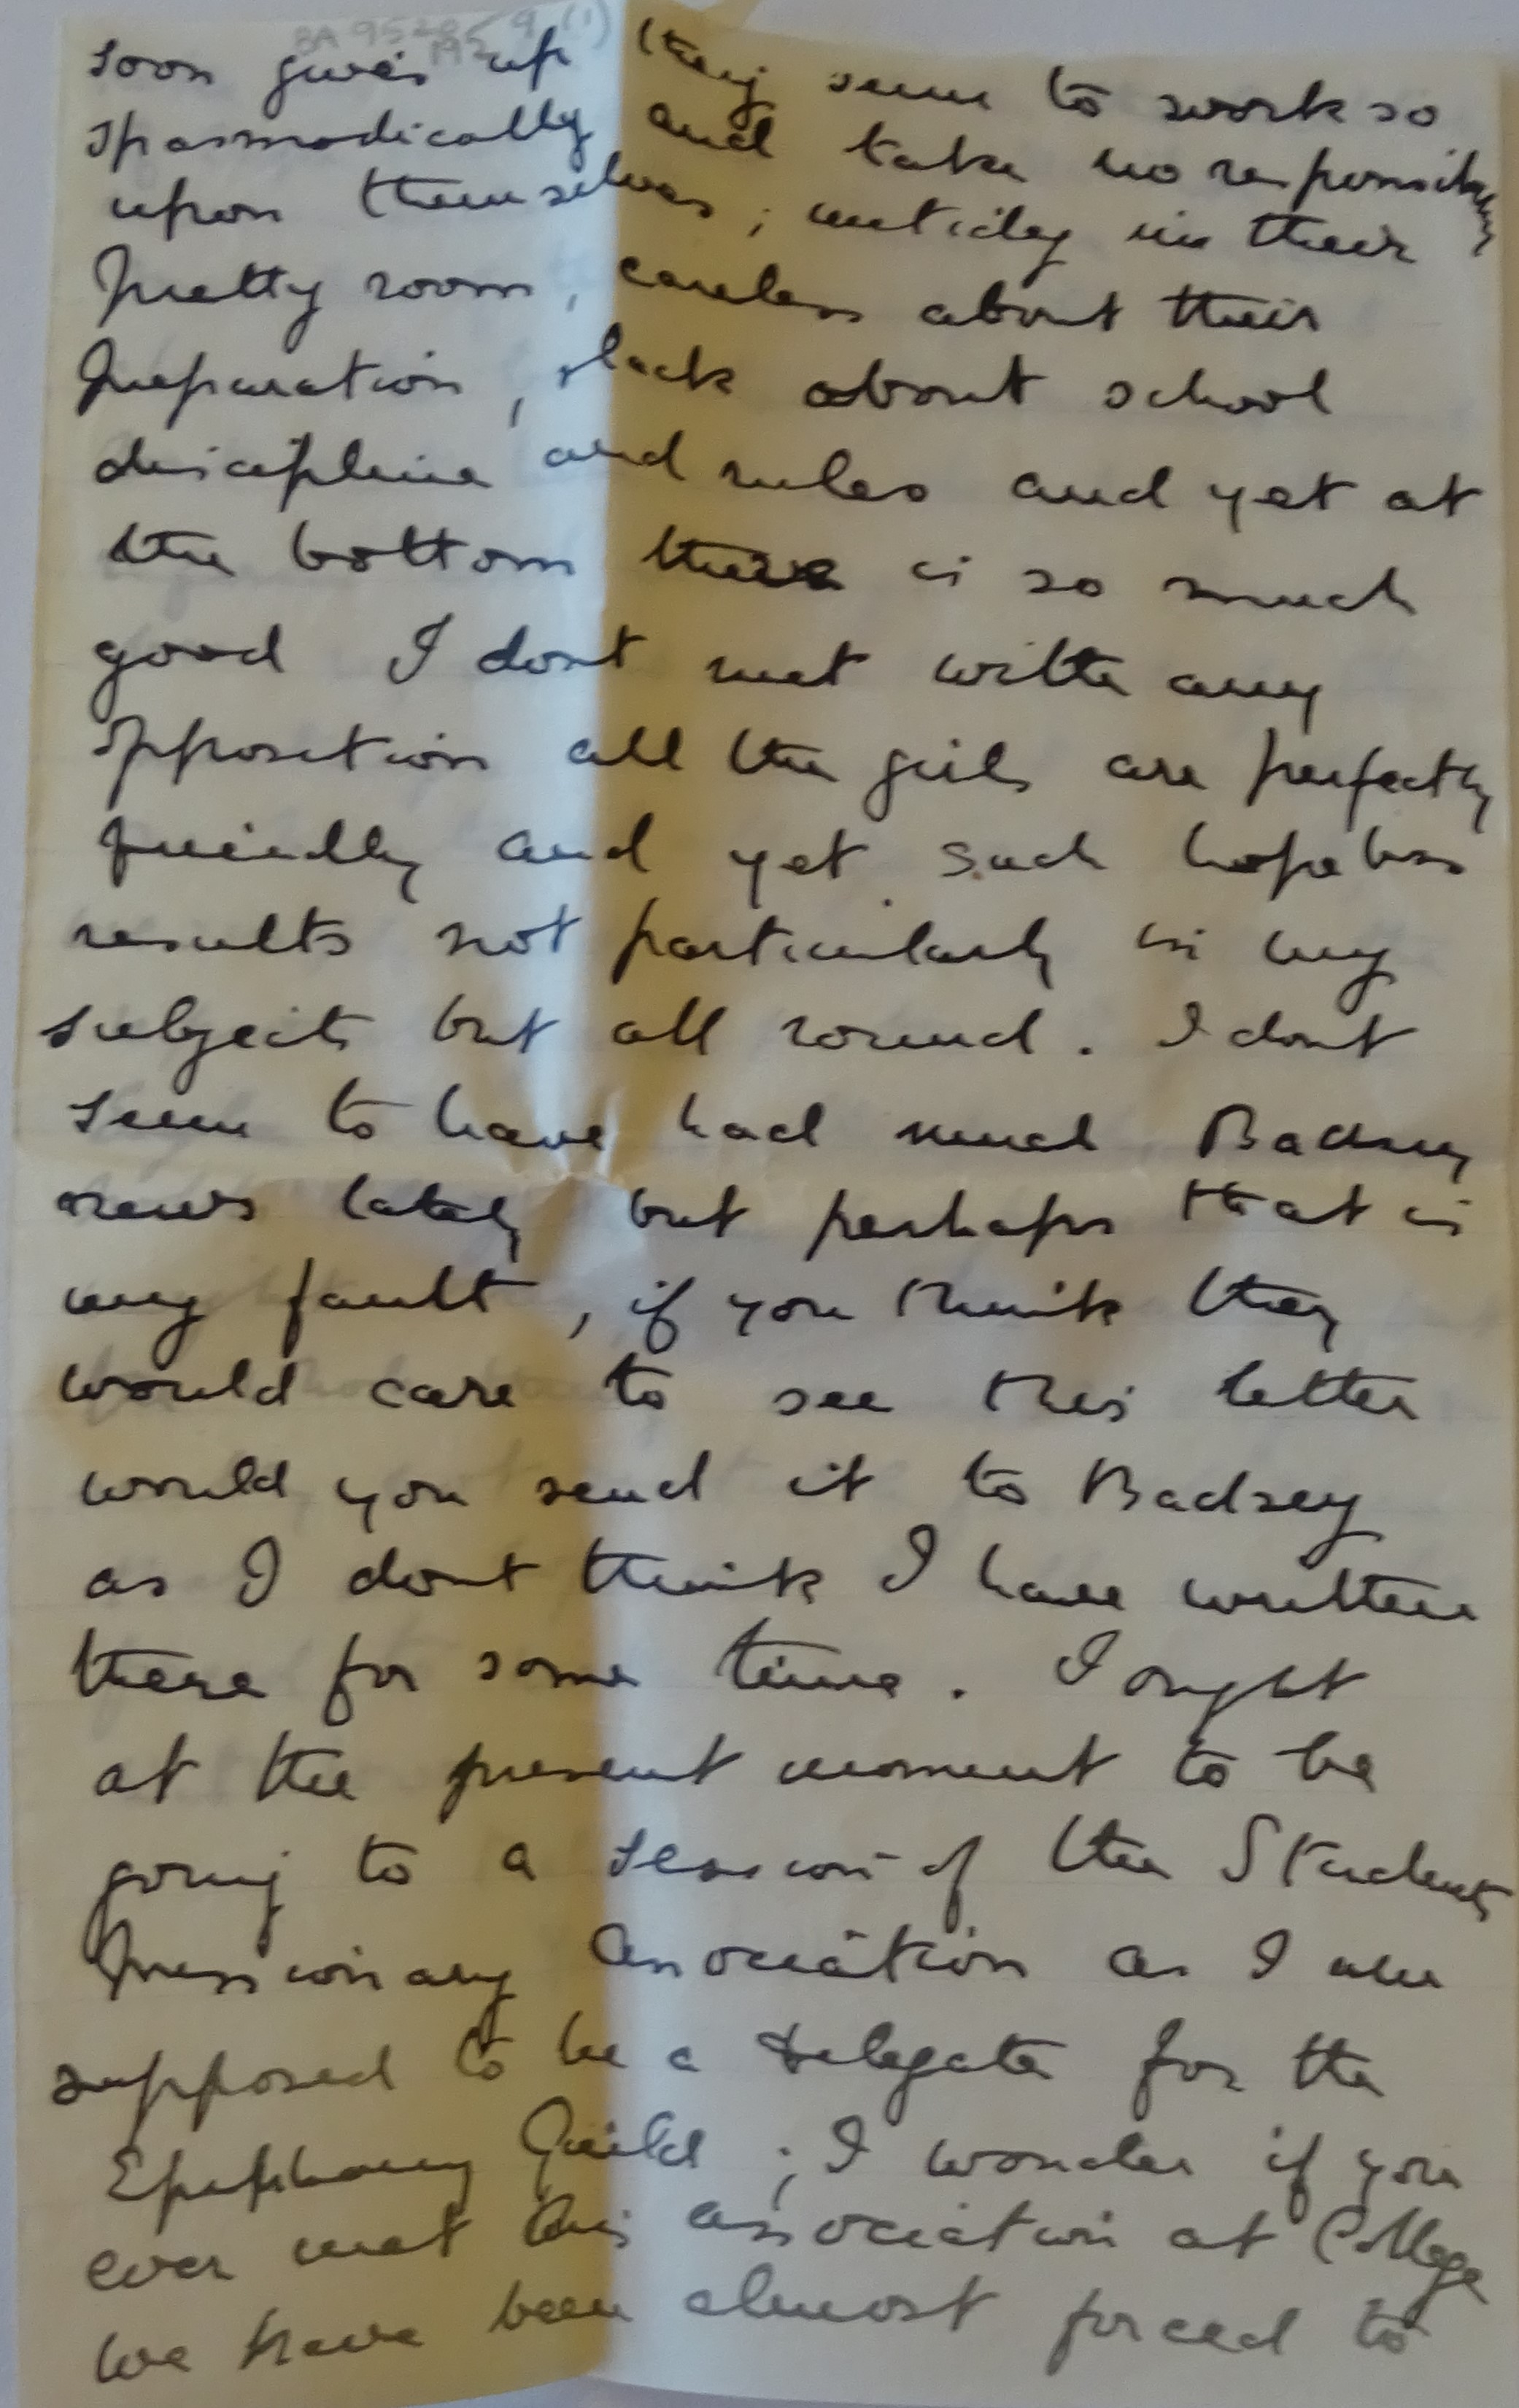 soon gives up they seem to work so
spasmodically and take no responsibility
upon themselves ; untidy in their
pretty room , careless about their
preparation , slack about school
discipline and rules and yet at
the bottom there is so much
good I dont met with any
opposition all the girls are perfectly
friendly and yet such hopeless
results not particularly in my
subjects but all round . I dont
seem to have had much Badsey
news lately but perhaps that is
my fault , if you think they
would care to see this letter
would you send it to Badsey
as I dont think I have written
there for some time . I ought
at the present moment to be
going to a session of the Students
Missionary Association as I am
supposed to be a delegate for the
Epiphany Guild ; I wonder if you
ever met this association at College
we have been almost forced to